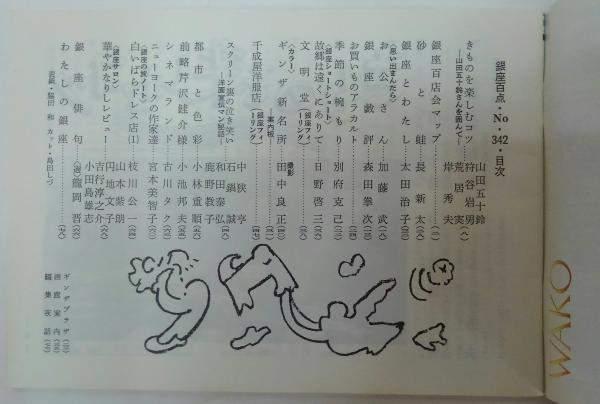 銀座百点・No・342・目次
きものを楽しむコツ
―山田五十鈴さんを囲んで―
山田五十鈴
狩谷岩男
荒居実
岸秀夫
(八)
銀座百店会マップ
砂と蛙 長新太
銀座とわたし 太田治子
〈思い出まんだら〉
お公さん 加藤武
銀座戯評 森田拳次
お買いものアラカルト
季節の椀もり 別府克己
〈銀座ショートショート〉
故郷は遠くにありて 日野啓三
文明堂〈銀座フィーリング〉
〈カラー〉
ギンザ新名所 撮影 田中良正
―案内板―
千成屋洋服店〈銀座フィーリング〉
スクリーン裏の泣き笑い
―洋画宣伝マン秘話―
中狭亨
石鍋誠
和田泰弘
鹿野教子
都市と色彩 小林重順
前略芹沢銈介様 小池邦夫
シネマランド 古川タク
ニューヨークの作家達 宮本美智子
〈銀座の旅ノート〉
白いばらドレス店(1) 枝川公一
〈銀座サロン〉
華やかなりしレビュー
山本紫朗
円地文子
吉行淳之介
小田島雄志
銀座俳句 (選)龍岡晋
わたしの銀座
表紙・脇田和 カット・島田しづ
ギンザプラザ
画廊案内
編集夜話
WAKO